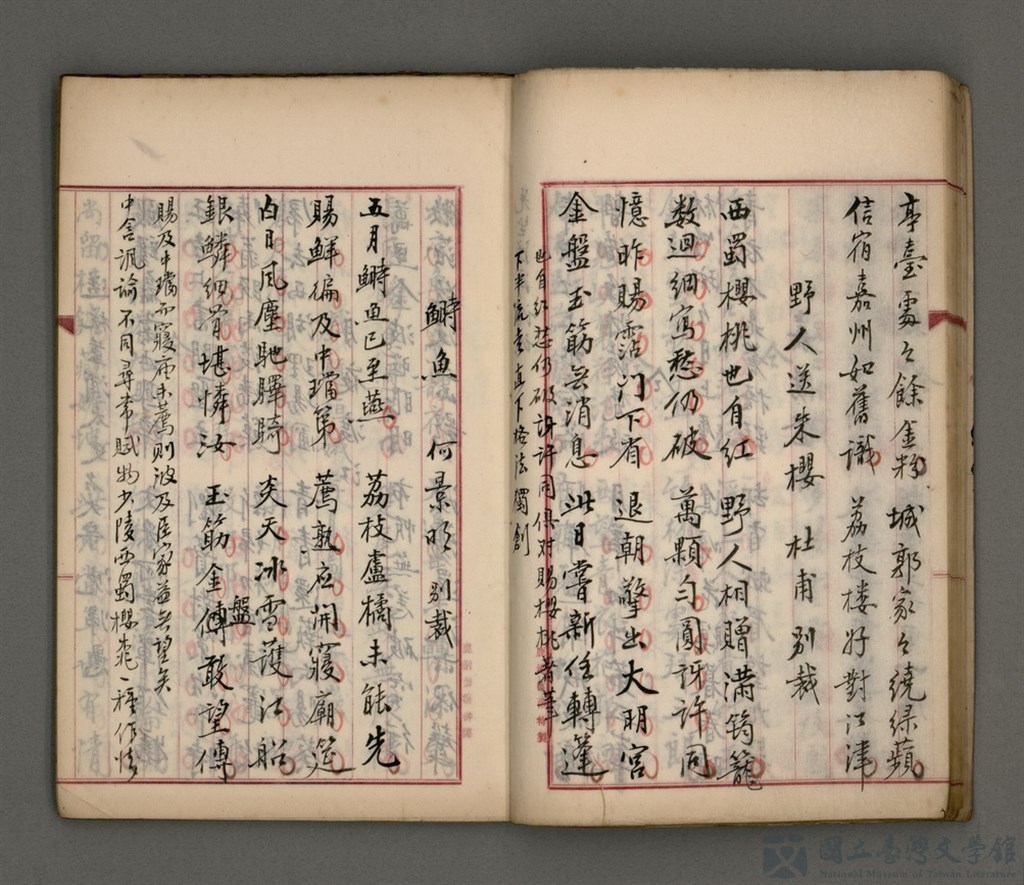 亭臺處々餘金粉 城郭家々繞綠蘋
信宿嘉州如舊識 荔枝楼好對江津
野人送朱櫻 杜甫 别裁
西蜀櫻桃也自紅 野人相贈滿筠籠
数迴細寫愁仍破 萬顆勻圓訝許同
憶昨賜霑门下省 退朝擎出大明宮
金盤玉筯無消息 此日嘗新任轉蓬
也自红愁仍破訝許同俱对賜櫻桃著筆
下半流走直下格法獨創
鰣魚 何景明 别裁
五月鰣魚已至燕 荔枝盧橘未能先
賜鮮徧及中璫第 薦熟应開寢廟筵
白日风塵馳驛騎 炎天冰雪護江船
銀鱗細骨堪憐汝 玉筯金傳敢望傳
盤
賜及中璫而寢庙未薦则波及臣家益無望矣
中含諷諭不同尋常賦物少陵西蜀櫻桃一種作法
國立臺灣文學館
National Museum of Taiwan Literature